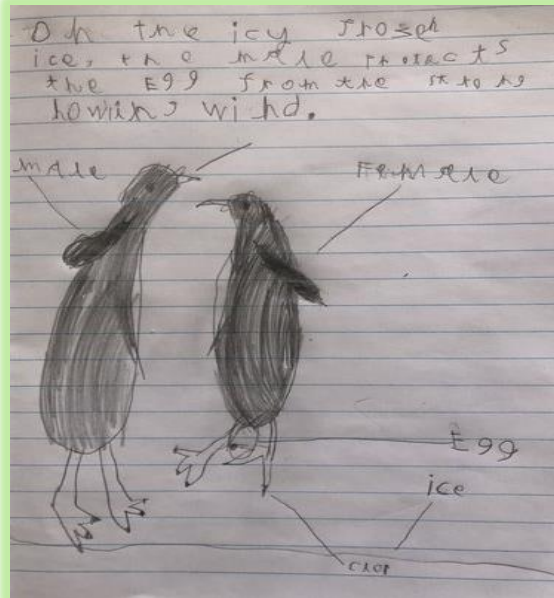 On the icy frozen
ice, the male protects
the Egg from the strong
howing wind.
male
Female
Egg
ice